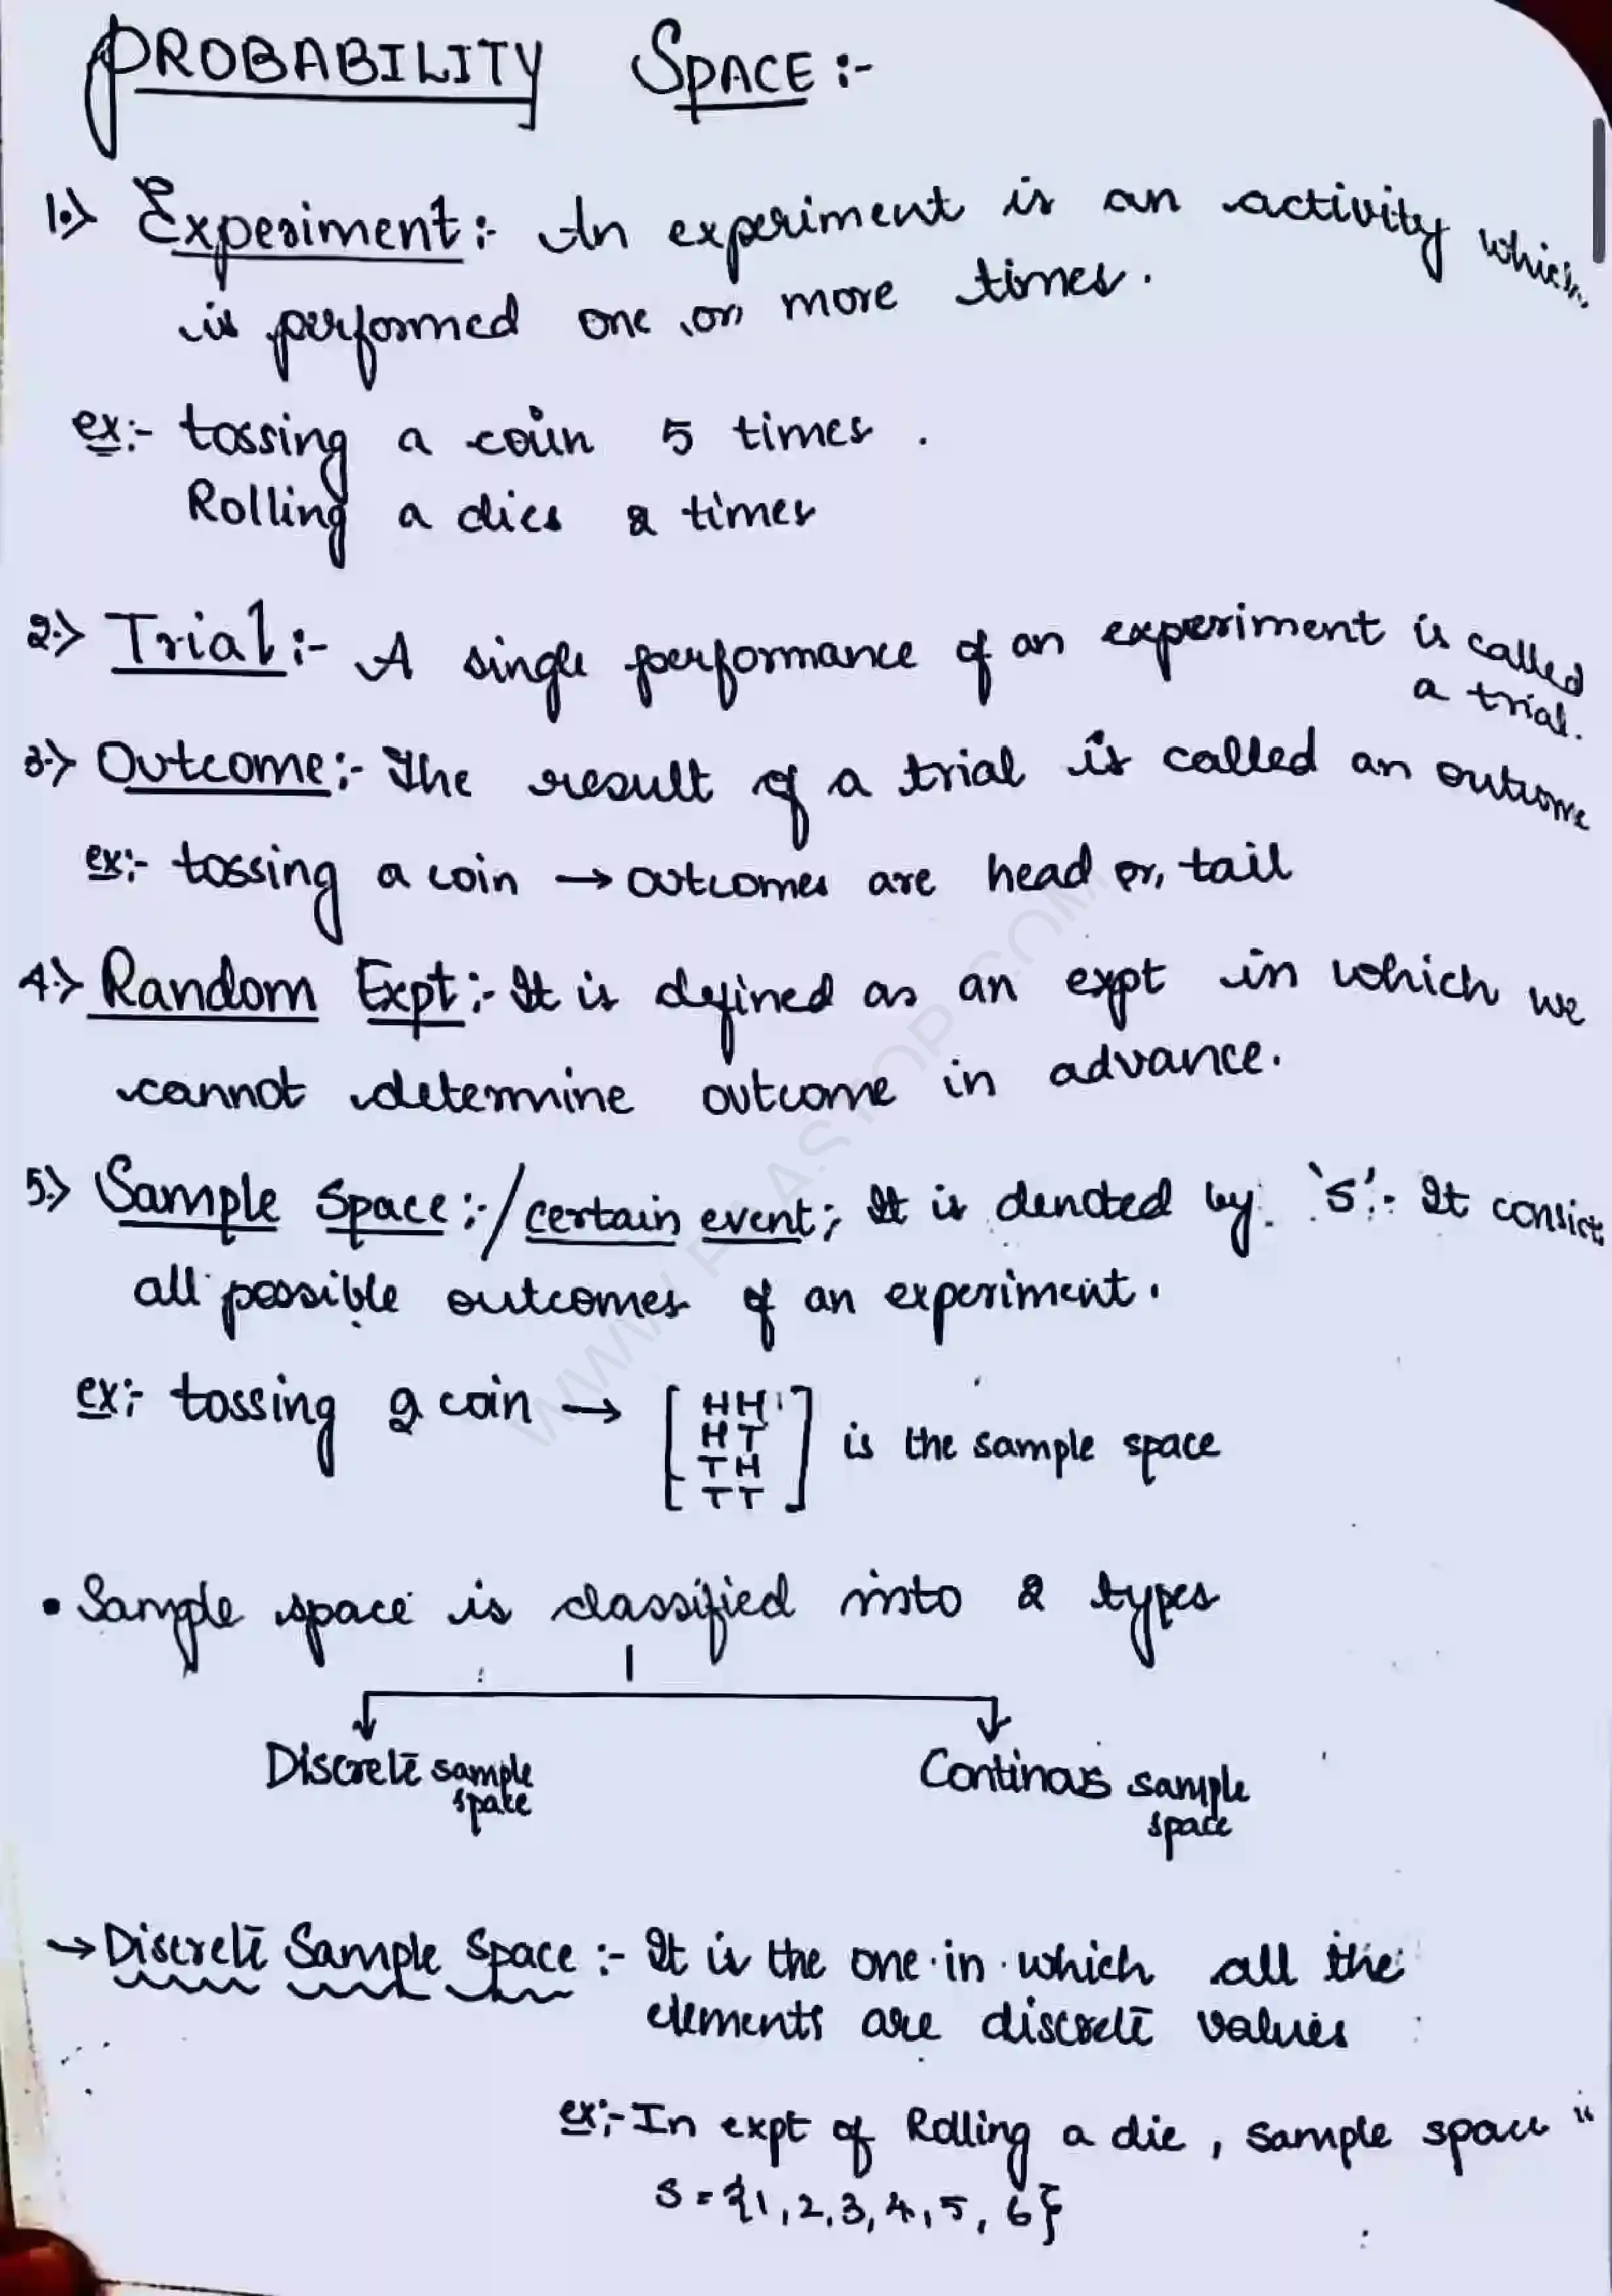 PROBABILITY SPACE :-
1.> Experiment :- An experiment is an activity which
is performed one or more times.
ex:- tossing a coin 5 times .
Rolling a dies 2 times
2.> Trial :- A single performance of an experiment is called
a trial.
3.> Outcome :- The result of a trial is called an outcome
ex:- tossing a coin → outcomes are head or, tail
4.> Random Expt :- It is defined as an expt in which we
cannot determine outcome in advance.
5.> Sample Space :-/certain event; It is denoted by 's': It consist
all possible outcomes of an experiment.
ex:- tossing 2 coin → [HH
HT
TH
TT] is the sample space
• Sample space is classified into 2 types
Discrete sample
space
Continous sample
space
→ Discrete Sample Space :- It is the one in which all the
elements are discrete values
ex:- In expt of Rolling a die, sample space "
S = {1, 2, 3, 4, 5, 6}